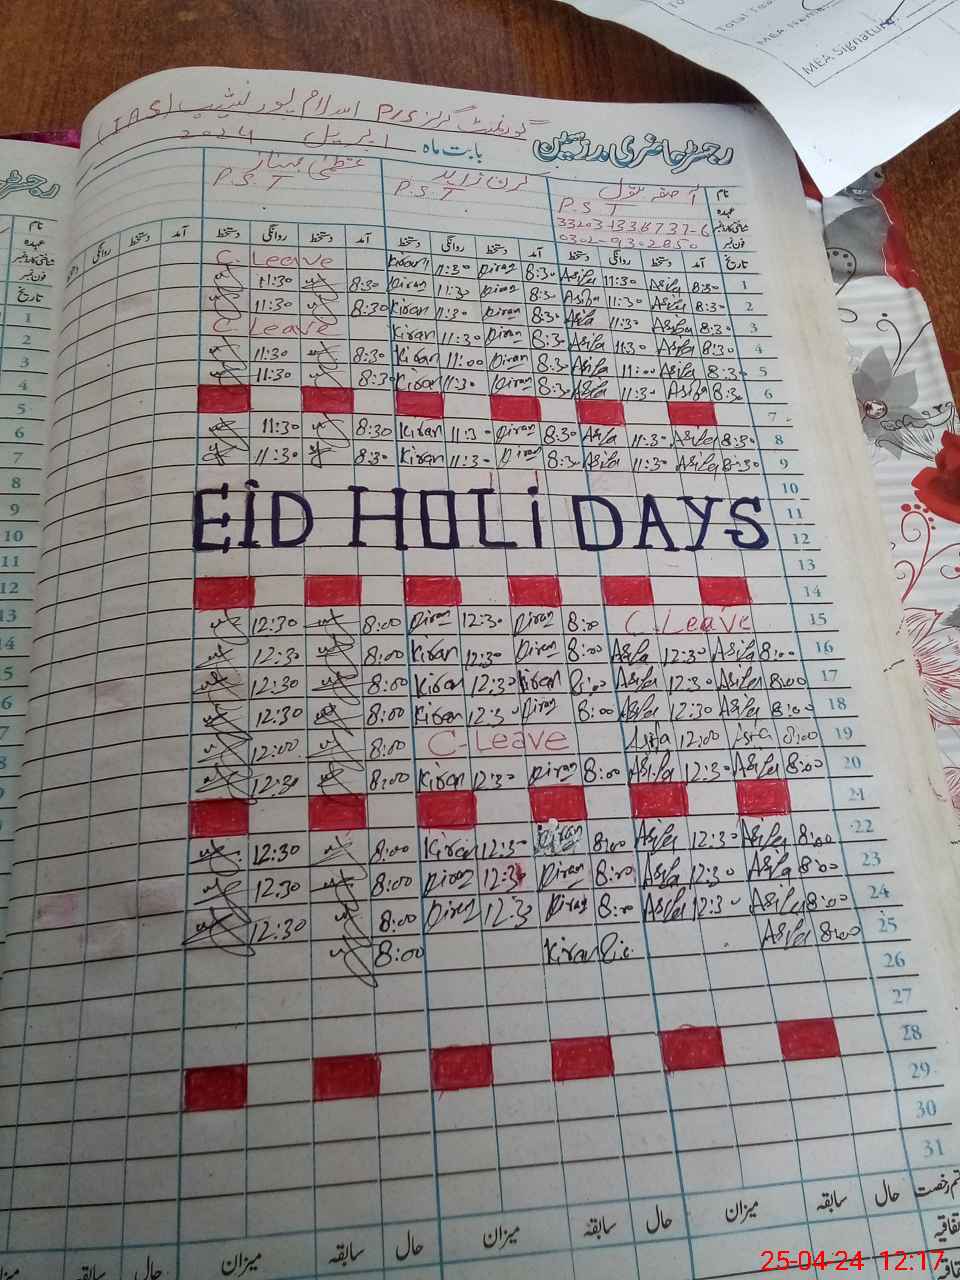 MEA Name
MEA Signature
گورنمنٹ گرلز P/S اسلام پور نشیب (IAS)
رجسٹر حاضری مدرسین بابت ماہ اپریل 2024
نام آصفہ بتول کرن زاہد عظمیٰ مہناز
عہدہ P.S.T P.S.T P.S.T
شناختی کارڈ نمبر
فون نمبر 0302-9302850
تاریخ آمد دستخط روانگی دستخط آمد دستخط روانگی دستخط آمد دستخط روانگی دستخط آمد دستخط روانگی
1 8:30 Asifa 11:30 Asifa 8:30 Kiran 11:30 Kiran C-Leave
2 8:30 Asifa 11:30 Asifa 8:30 Kiran 11:30 Kiran 8:30 11:30
3 8:30 Asifa 11:30 Asifa 8:30 Kiran 11:30 Kiran 8:30 11:30
4 8:30 Asifa 11:30 Asifa 8:30 Kiran 11:30 Kiran C-Leave
5 8:30 Asifa 11:00 Asifa 8:30 Kiran 11:00 Kiran 8:30 11:30
6 8:30 Asifa 11:30 Asifa 8:30 Kiran 11:30 Kiran 8:30 11:30
7
8 8:30 Asifa 11:30 Asifa 8:30 Kiran 11:30 Kiran 8:30 11:30
9 8:30 Asifa 11:30 Asifa 8:30 Kiran 11:30 Kiran 8:30 11:30
10
11 EID HOLIDAYS
12
13
14
15 C.Leave 8:00 Kiran 12:30 Kiran 8:00 12:30
16 8:00 Asifa 12:30 Asifa 8:00 Kiran 12:30 Kiran 8:00 12:30
17 8:00 Asifa 12:30 Asifa 8:00 Kiran 12:30 Kiran 8:00 12:30
18 8:00 Asifa 12:30 Asifa 8:00 Kiran 12:30 Kiran 8:00 12:30
19 8:00 Asifa 12:00 Asifa C-Leave 8:00 12:00
20 8:00 Asifa 12:30 Asifa 8:00 Kiran 12:30 Kiran 8:00 12:30
21
22 8:00 Asifa 12:30 Asifa 8:00 Kiran 12:30 Kiran 8:00 12:30
23 8:00 Asifa 12:30 Asifa 8:00 Kiran 12:30 Kiran 8:00 12:30
24 8:00 Asifa 12:30 Asifa 8:00 Kiran 12:30 Kiran 8:00 12:30
25 8:00 Asifa Kiran 8:00
26
27
28
29
30
31
حال سابقہ میزان حال سابقہ میزان حال سابقہ میزان حال سابقہ
25-04-24 12:17